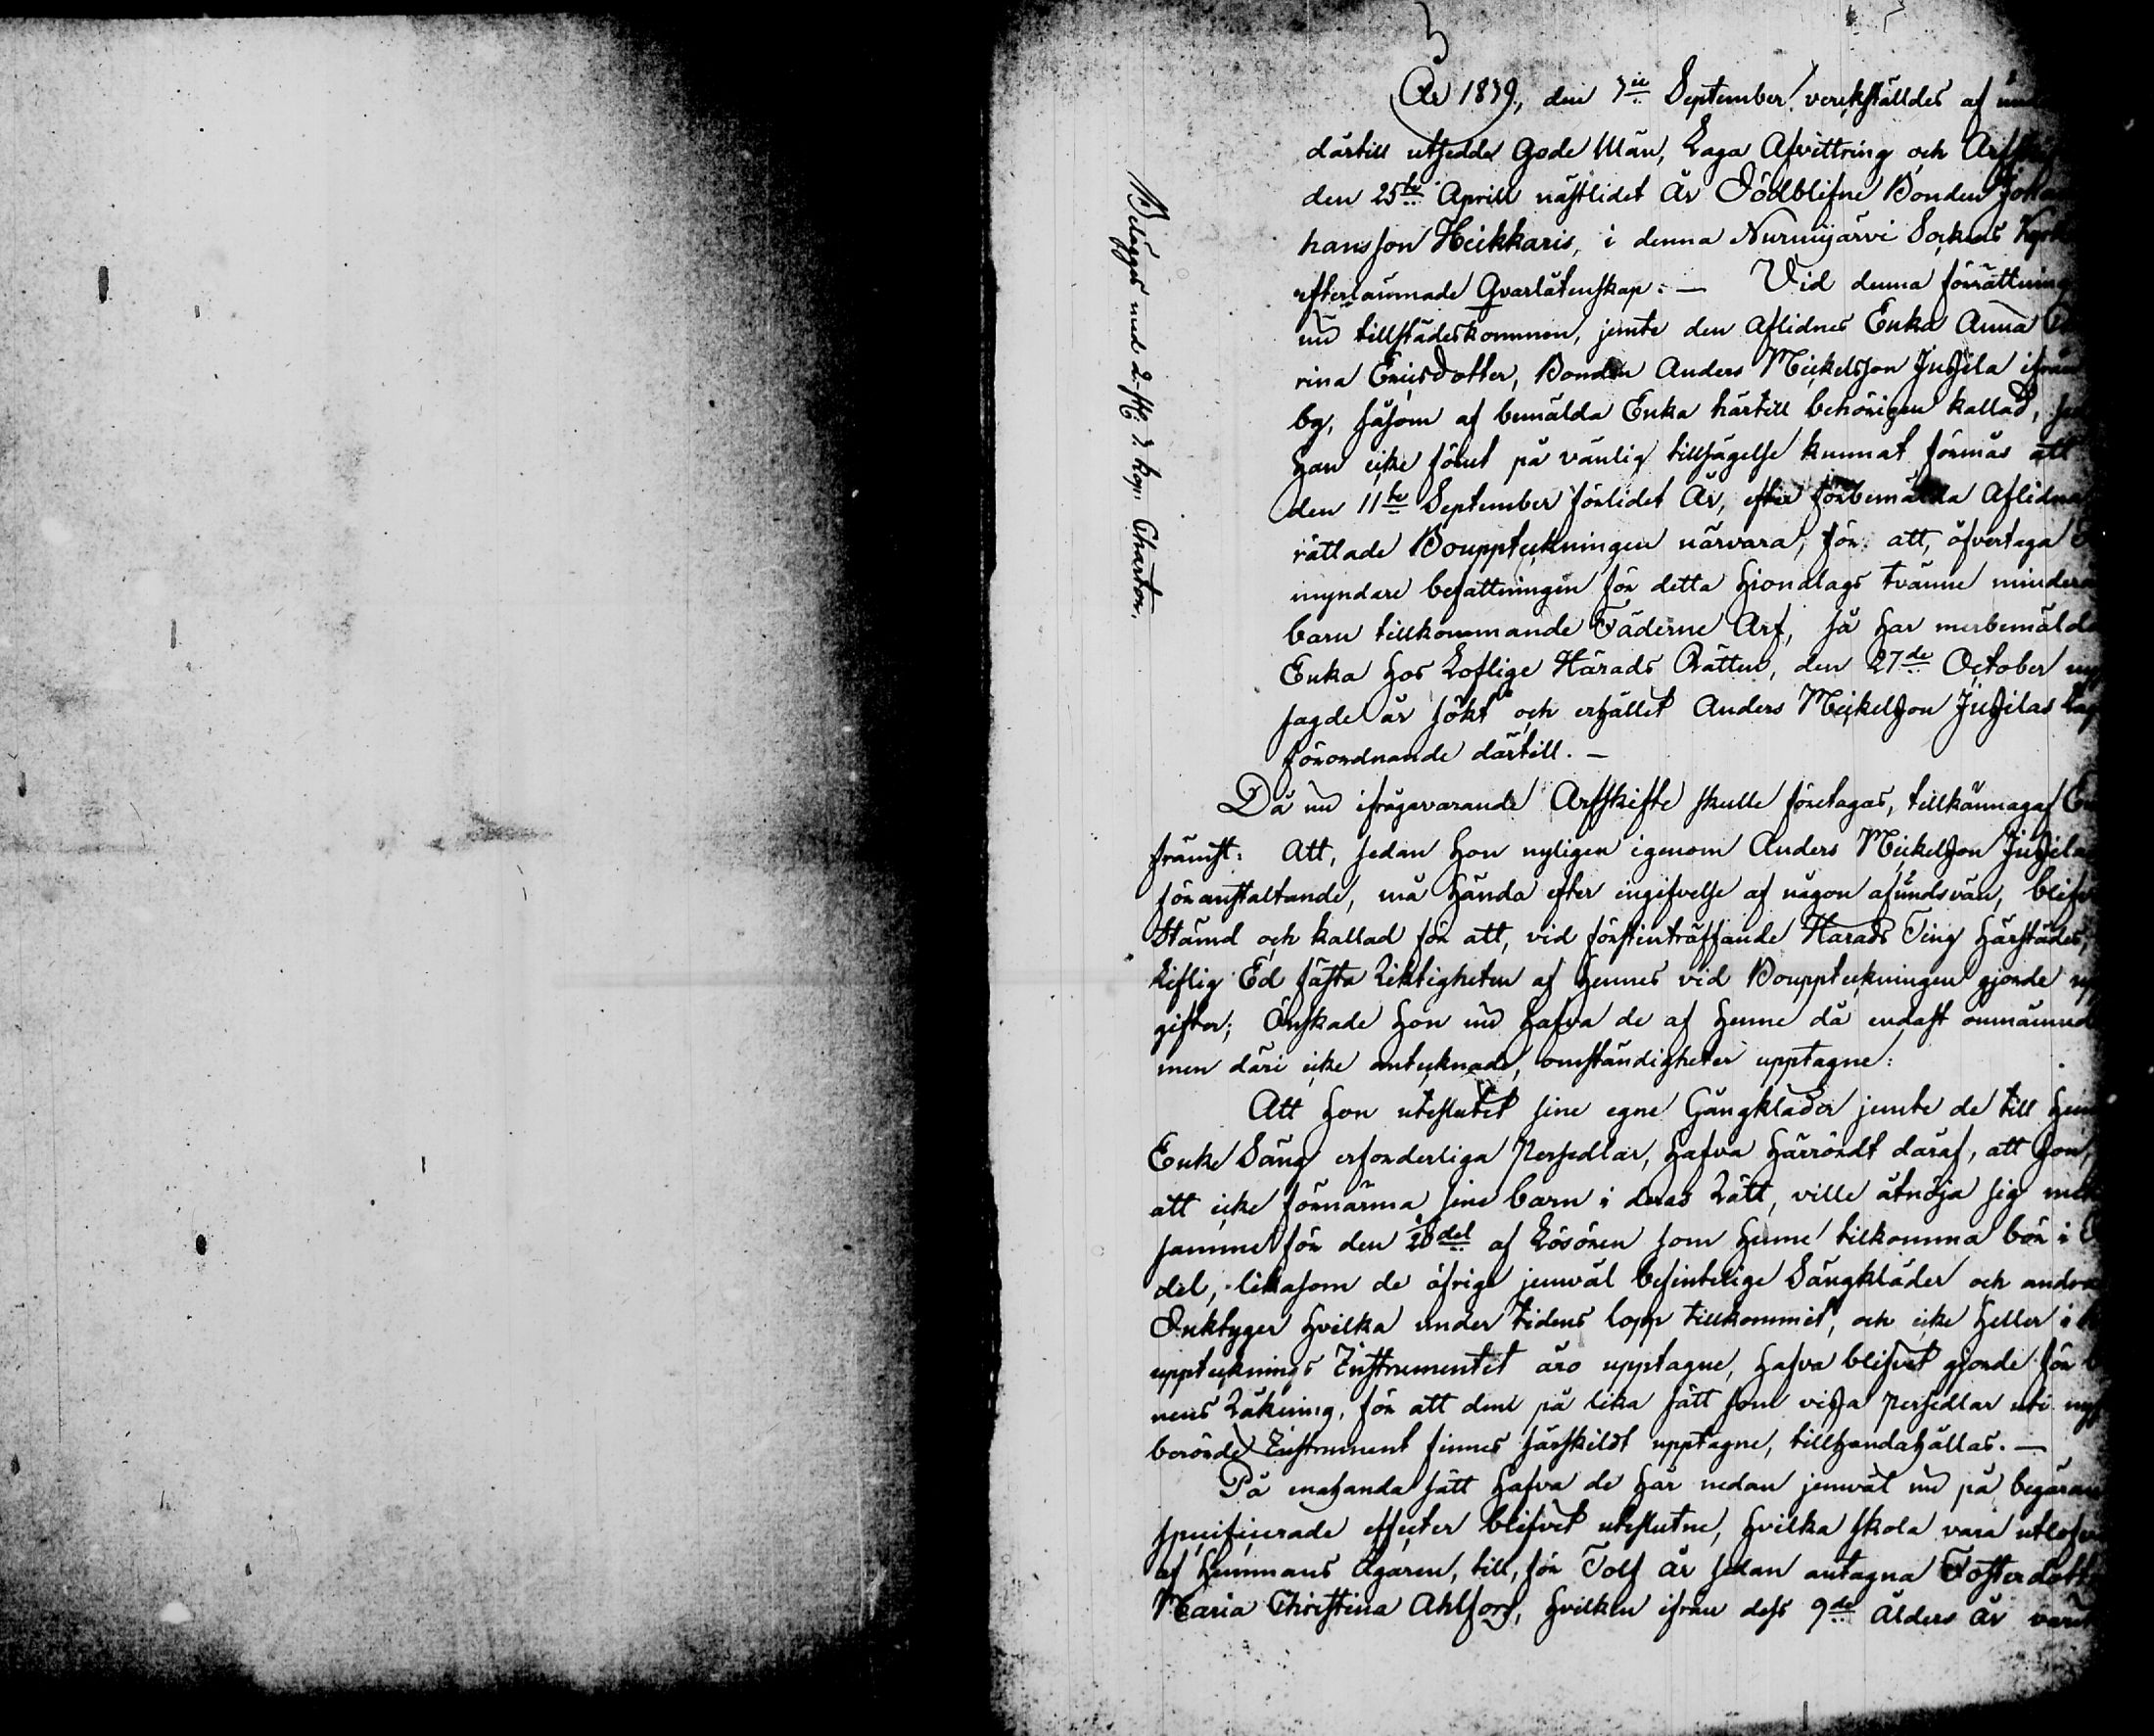 År 1839, den 7de September verckställdes af
därtill utsedde Gode Män, Laga Afvittring och
den 25te Aprill nästlidet År Dödblifne Bonden
hansson Heikkaris, i denna Nurmijärvi Sockens
efterlämnade Qvarlåtenskap. — Vid denna förrättning
nu tillstädeskommen, jemte den aflidnes Enka Anna
rina Ericsdotter, Bonden Anders Mickelsson Jussila ifrån
by, såsom af bemälda Enka härtill behörigen kallad,
han icke förut på vänlig tillsägelse kunnat förmås att
den 11te September förlidet År, efter förbemälda Aflidne
rättade Bouppteckningen närvara, för att, öfvertaga
myndare befattningen för detta hiondlags tvänne
barn tillkommande Fäderne Arf, så har merbemälda
Enka hos Loflige Härads Rätten, den 27de October
sagde år sökt och erhållet Anders Mickelsson Jussilas
förordnande därtill. —
Då nu ifrågavarande Arfskifte skulle företagas, tillkännagaf
främst: Att, sedan hon nyligen igenom Anders Mickelsson Jussilas
föranstaltande, må hända efter ingifvelse af någon afundsvän,
Stämd och kallad för att, vid förstinträffande Härads Ting härstädes,
Liflig Ed fästa Riktigheten af hennes vid Bouppteckningen gjorde
gifter; Önskade hon nu hafva de af henne då endast omnämnde
men däri icke antecknade, omständigheter upptagne:
Att hon uteslutet sine egne Gångkläder jemte de till
Enke Säng erforderliga Persedlar, hafva härrördt däraf, att hon,
att icke förnärma sine barn i deras Rätt, ville åtnöja sig med
samme för den 20del af Lösören som henne tilkomma bör i
del, likasom de öfrige jemwäl befintelige Sängkläder och andra
Onktyger hvilka under tidens lopp tillkommit, och icke heller i
upptecknings Instrumentet äro upptagne, hafva blifvet gjorde för
nens Räkning, för att dem på lika sätt som vissa persedlar uti
berörde Instrument finnes särskildt upptagne, tillhandahållas. —
På enahanda sätt hafva de här nedan jemwäl nu på begäran
specificerade effecter blifvet uteslutne, hvilka skola vara
af Hemmans Ägaren, till, för Tolf år sedan antagna Fosterdotter
Maria Christina Ahlfors, hvilken ifrån dess 9de ålders år varit
Belägges med 2 kop: Charton.